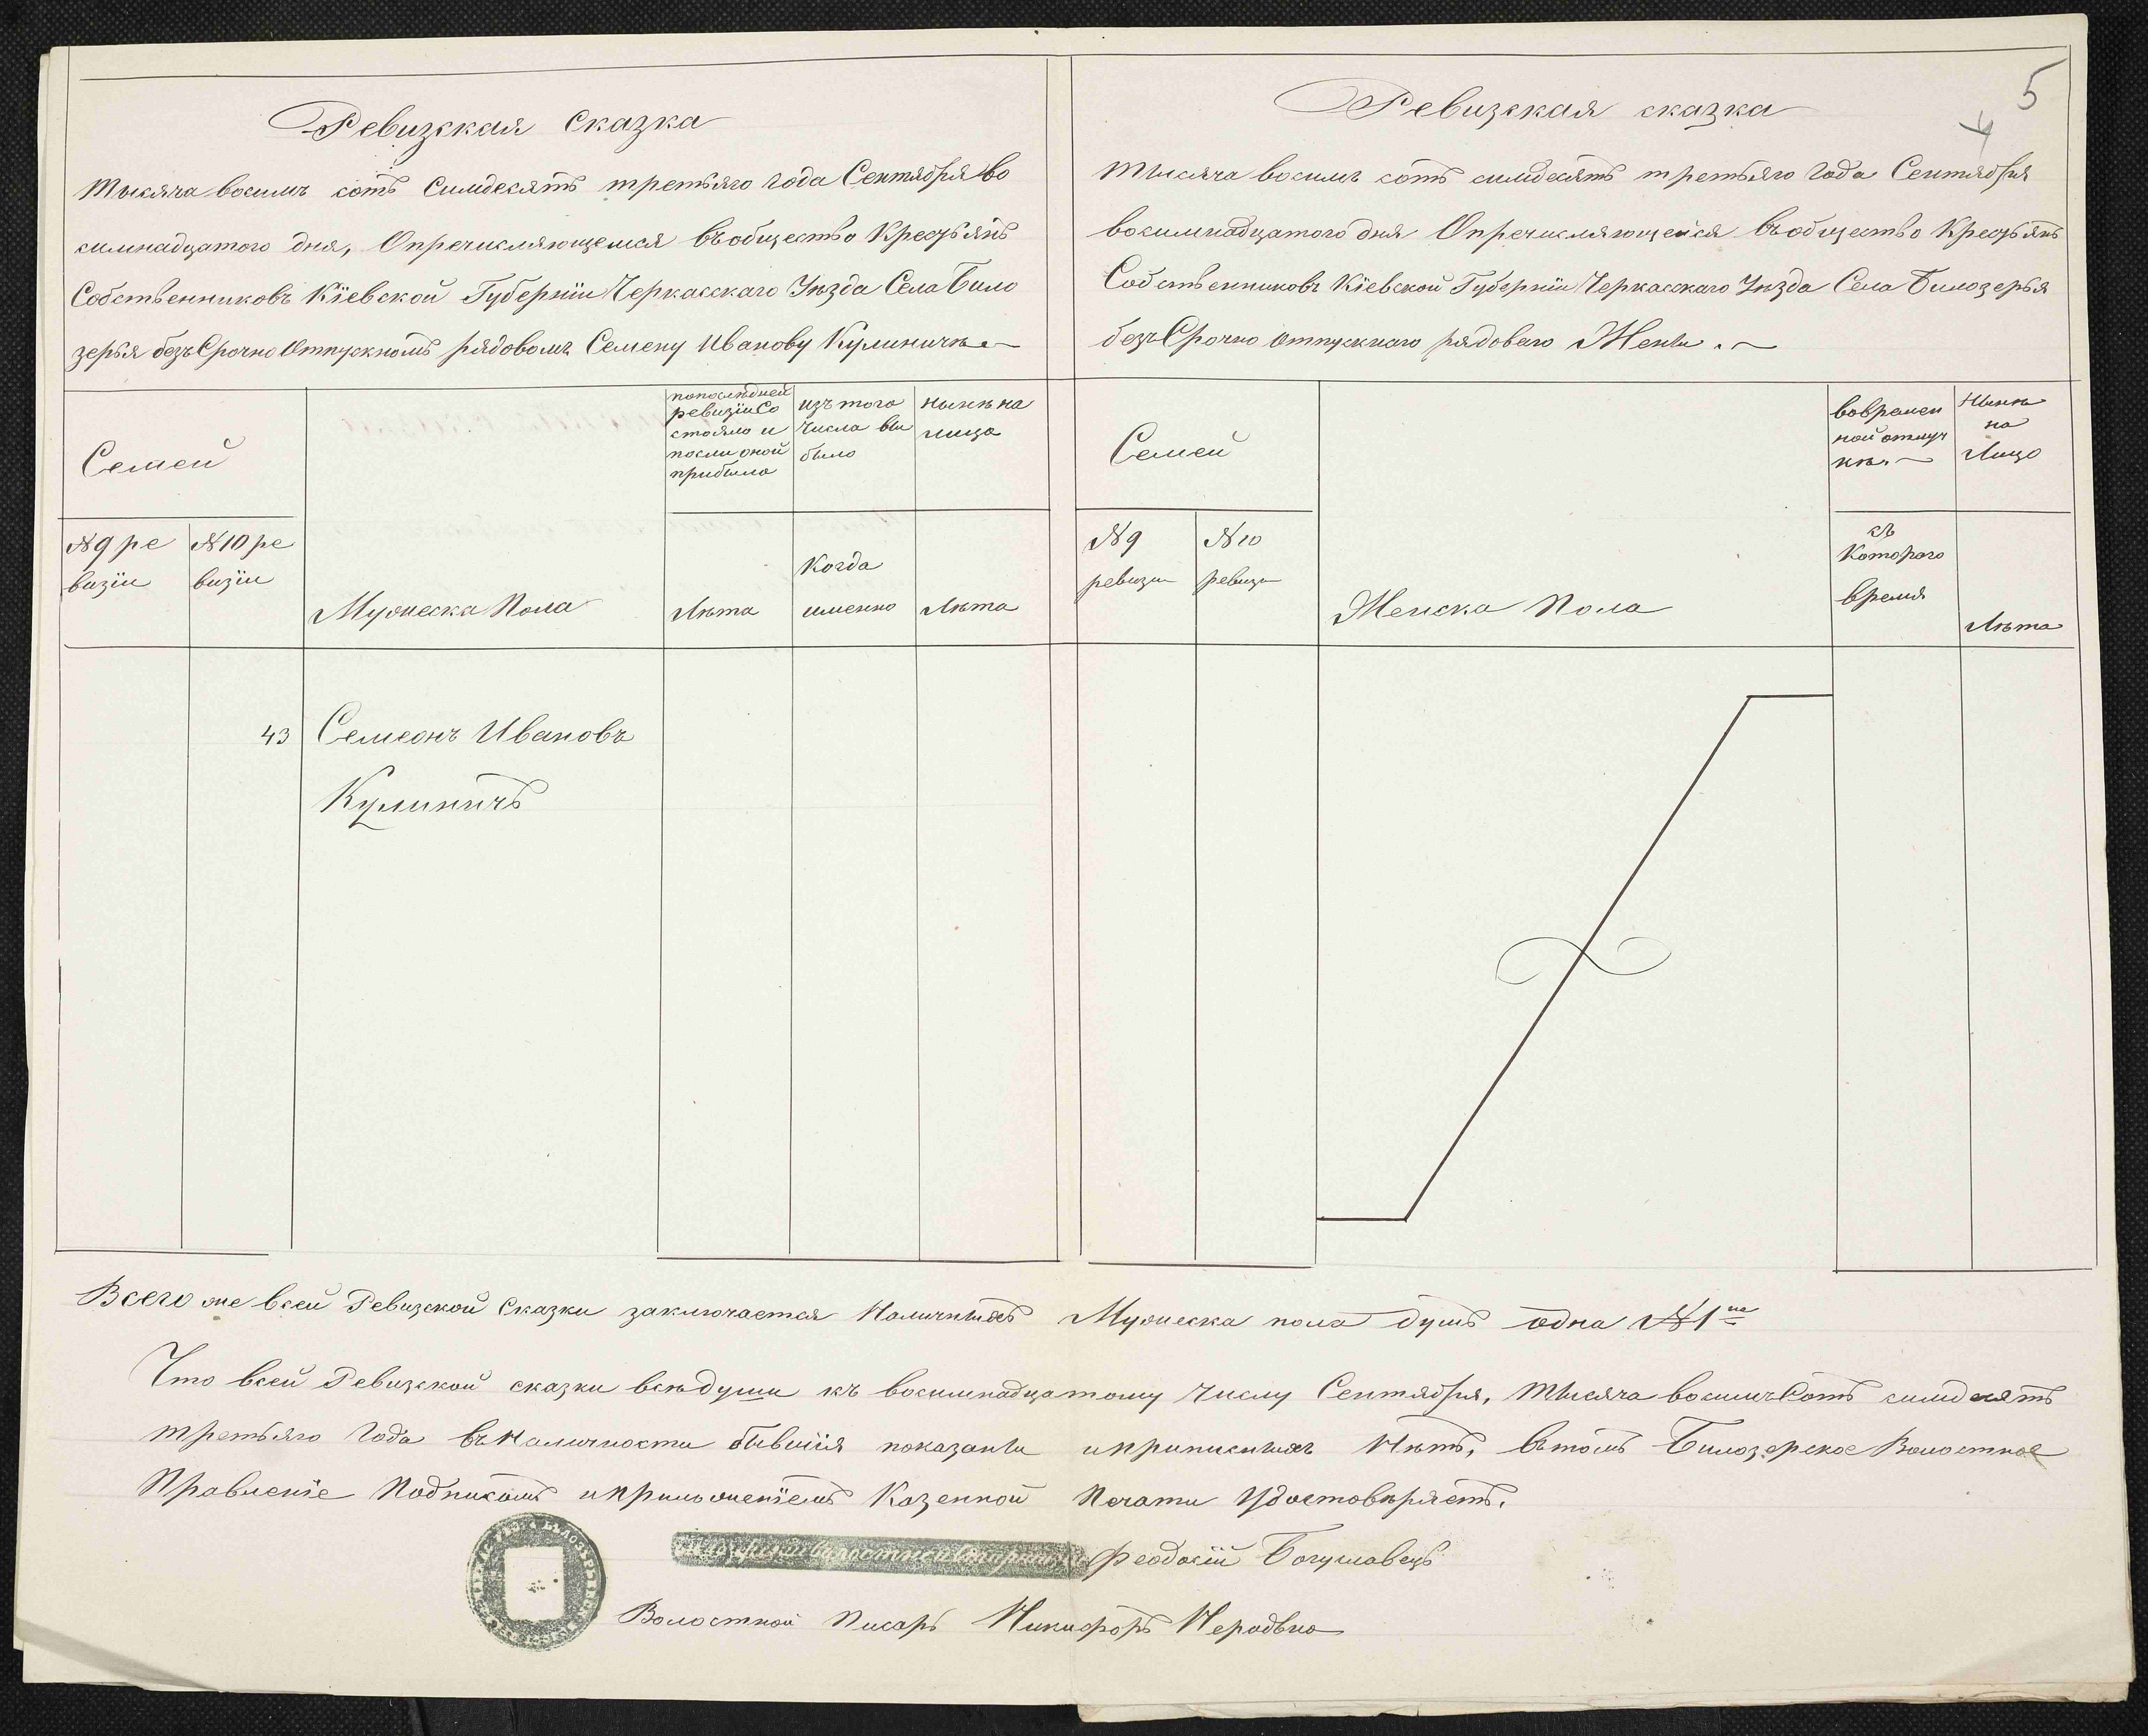 5
4
Ревизская Сказка
Тысяча восимъ сотъ Симдесятъ третьяго года Сентября во
симнадцатого дня, Опречисляющемся въ общество Крестьянъ
Собственниковъ Кіевской Губерніи Черкасскаго Уѣзда Села Било
зерья безъ Срочно Отпускномъ рядовомъ Семену Иванову Кулиничѣ
Семей
попослѣдней
ревизіи Со
стояло и
посли оной
прибыло
изъ того
числа вы
было
нынѣ на
лицо
№ 9 ре
визіи
№ 10 ре
визіи
Мужеска Пола
Лѣта
Когда
именно
Лѣта
43
Семеонъ Ивановъ
Кулиничъ
Ревизская сказка
Тысяча восимъ сотъ симдесятъ третьяго года Сентября
восимнадцатого дня Опречисляющейся въ общество Крестьянъ
Собственниковъ Кіевской Губерніи Черкасскаго Уѣзда Села Билозерья
безъ Срочно отпускнаго рядоваго Жены
Семей
вовремен
ной отлуч
кѣ.
Нынѣ
на
Лицо
№ 9
ревизи
№ 10
ревизи
Женска Пола
съ
Которого
время
Лѣта
Всего же всей Ревизской Сказки заключается Наличныхъ Мужеска пола душъ одна № 1
Что всей Ревизской сказки всѣ души къ восимнадцатому числу Сентября, тысяча восимъ Сотъ симдесятъ
третьяго года въ Наличности бывшія показаны и приписныхъ Нѣтъ, въ томъ Билозерское Волостное
Правленіе Подписомъ и приложеніемъ Казенной Печати Удостовѣряетъ.
Феодосій Богуславецъ
Волостной Писарь Никифоръ Неродько